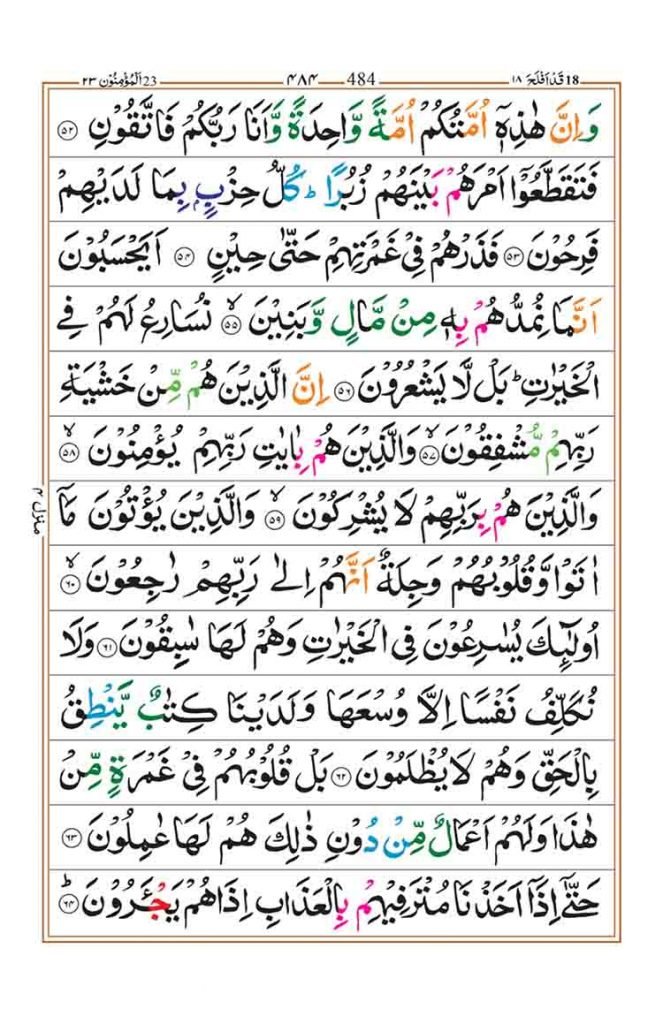 18 قَدۡ اَفۡلَحَ ١٨ 484 ۴۸۴ 23 اَلۡمُؤۡمِنُوۡن ٢٣
وَاِنَّ هٰذِهٖۤ اُمَّتُكُمۡ اُمَّةً وَّاحِدَةً وَّاَنَا رَبُّكُمۡ فَاتَّقُوۡنِ ۝۵۲
فَتَقَطَّعُوۡۤا اَمۡرَهُمۡ بَيۡنَهُمۡ زُبُرًا ؕ كُلُّ حِزۡبٍۭ بِمَا لَدَيۡهِمۡ
فَرِحُوۡنَ ۝۵۳ فَذَرۡهُمۡ فِىۡ غَمۡرَتِهِمۡ حَتّٰى حِيۡنٍ ۝۵۴ اَيَحۡسَبُوۡنَ
اَنَّمَا نُمِدُّهُمۡ بِهٖ مِنۡ مَّالٍ وَّبَنِيۡنَۙ ۝۵۵ نُسَارِعُ لَهُمۡ فِى
الۡخَيۡرٰتِ ؕ بَلۡ لَّا يَشۡعُرُوۡنَ ۝۵۶ اِنَّ الَّذِيۡنَ هُمۡ مِّنۡ خَشۡيَةِ
رَبِّهِمۡ مُّشۡفِقُوۡنَۙ ۝۵۷ وَالَّذِيۡنَ هُمۡ بِاٰيٰتِ رَبِّهِمۡ يُؤۡمِنُوۡنَۙ ۝۵۸
وَالَّذِيۡنَ هُمۡ بِرَبِّهِمۡ لَا يُشۡرِكُوۡنَۙ ۝۵۹ وَالَّذِيۡنَ يُؤۡتُوۡنَ مَاۤ
اٰتَوْا وَّقُلُوۡبُهُمۡ وَجِلَةٌ اَنَّهُمۡ اِلٰى رَبِّهِمۡ رٰجِعُوۡنَۙ ۝۶۰
اُولٰٓئِكَ يُسٰرِعُوۡنَ فِى الۡخَيۡرٰتِ وَهُمۡ لَهَا سٰبِقُوۡنَ ۝۶۱ وَلَا
نُكَلِّفُ نَفۡسًا اِلَّا وُسۡعَهَا وَلَدَيۡنَا كِتٰبٌ يَّنۡطِقُ
بِالۡحَقِّ وَهُمۡ لَا يُظۡلَمُوۡنَ ۝۶۲ بَلۡ قُلُوۡبُهُمۡ فِىۡ غَمۡرَةٍ مِّنۡ
هٰذَا وَلَهُمۡ اَعۡمَالٌ مِّنۡ دُوۡنِ ذٰلِكَ هُمۡ لَهَا عٰمِلُوۡنَ ۝۶۳
حَتّٰۤى اِذَاۤ اَخَذۡنَا مُتۡرَفِيۡهِمۡ بِالۡعَذَابِ اِذَا هُمۡ يَجۡئَرُوۡنَؕ ۝۶۴
منزل ۴